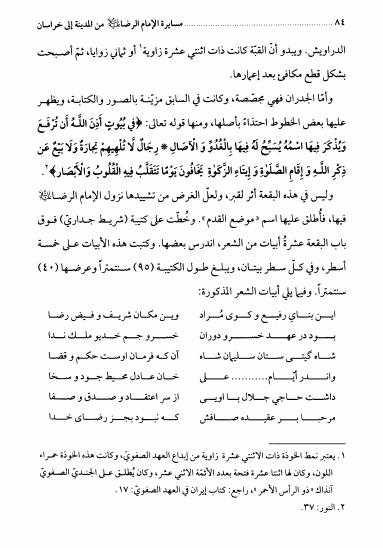 ٨٤ ........ مسايرة الإمام الرضا من المدينة إلى خراسان
الدراويش. ويبدو أنّ القبّة كانت ذات اثنتي عشرة زاوية١ أو ثماني زوايا، ثمّ أصبحت
بشكل قطع مكافئ بعد إعمارها.
وأمّا الجدران فهي مجصّصة، وكانت في السابق مزيّنة بالصور والكتابة، ويظهر
عليها بعض الخطوط احتذاءً بأصلها، ومنها قوله تعالى: ﴿فِي بُيُوتٍ أَذِنَ اللَّهُ أَن تُرْفَعَ
وَيُذْكَرَ فِيهَا اسْمُهُ يُسَبِّحُ لَهُ فِيهَا بِالْغُدُوِّ وَ الْآصَالِ * رِجَالٌ لَّا تُلْهِيهِمْ تِجَارَةٌ وَلَا بَيْعٌ عَن
ذِكْرِ اللَّهِ وَ إِقَامِ الصَّلَوٰةِ وَ إِيتَاءِ الزَّكَوٰةِ يَخَافُونَ يَوْمًا تَتَقَلَّبُ فِيهِ الْقُلُوبُ وَالْأَبْصَارُ﴾٢.
وليس في هذه البقعة أثر لقبر، ولعلّ الغرض من تشييدها نزول الإمام الرضا
فيها، فأُطلق عليها اسم «موضع القدم». وخُطّت على كتيبة (شريط جداريّ) فوق
باب البقعة عشرةُ أبيات من الشعر، اندرس بعضها. وكتبت هذه الأبيات على خمسة
أسطر، وفي كلّ سطر بيتان، ويبلغ طول الكتيبة (٩٥) سنتمتراً وعرضها (٤٠)
سنتمتراً. وفيما يلي أبيات الشعر المذكورة:
ايـن بنـاي رفيـع و كـوى مُـراد وين مكان شريف و فيض رضا
بـود در عهـد خسـرو دوران خسـرو جـم خديو ملـك نـدا
شـاه گيتـى ستان سليمان شـاه آن كـه فرمان اوست حكم و قضا
وانـدر أيّـام........... علـى خان عادل محيط جود و سخا
داشت حاجي جلال بـا اوبـى از سر اعتقـاد و صـدق و صـفا
مرحبـا بـر عقيـده صـافش كـه نبـود بجـز رضـاى خـدا
١. يعتبر نمط الخوذة ذات الاثني عشرة زاوية من إبداع العهد الصفويّ، وكانت هذه الخوذة حمراء
اللون، وكان لها اثنتا عشرة فتحة بعدد الأئمّة الاثني عشر، وكان يُطلق على الجنديّ الصفويّ
آنذاك «ذو الرأس الأحمر»، راجع: كتاب إيران في العهد الصفويّ: ١٧.
٢. النور: ٣٧.